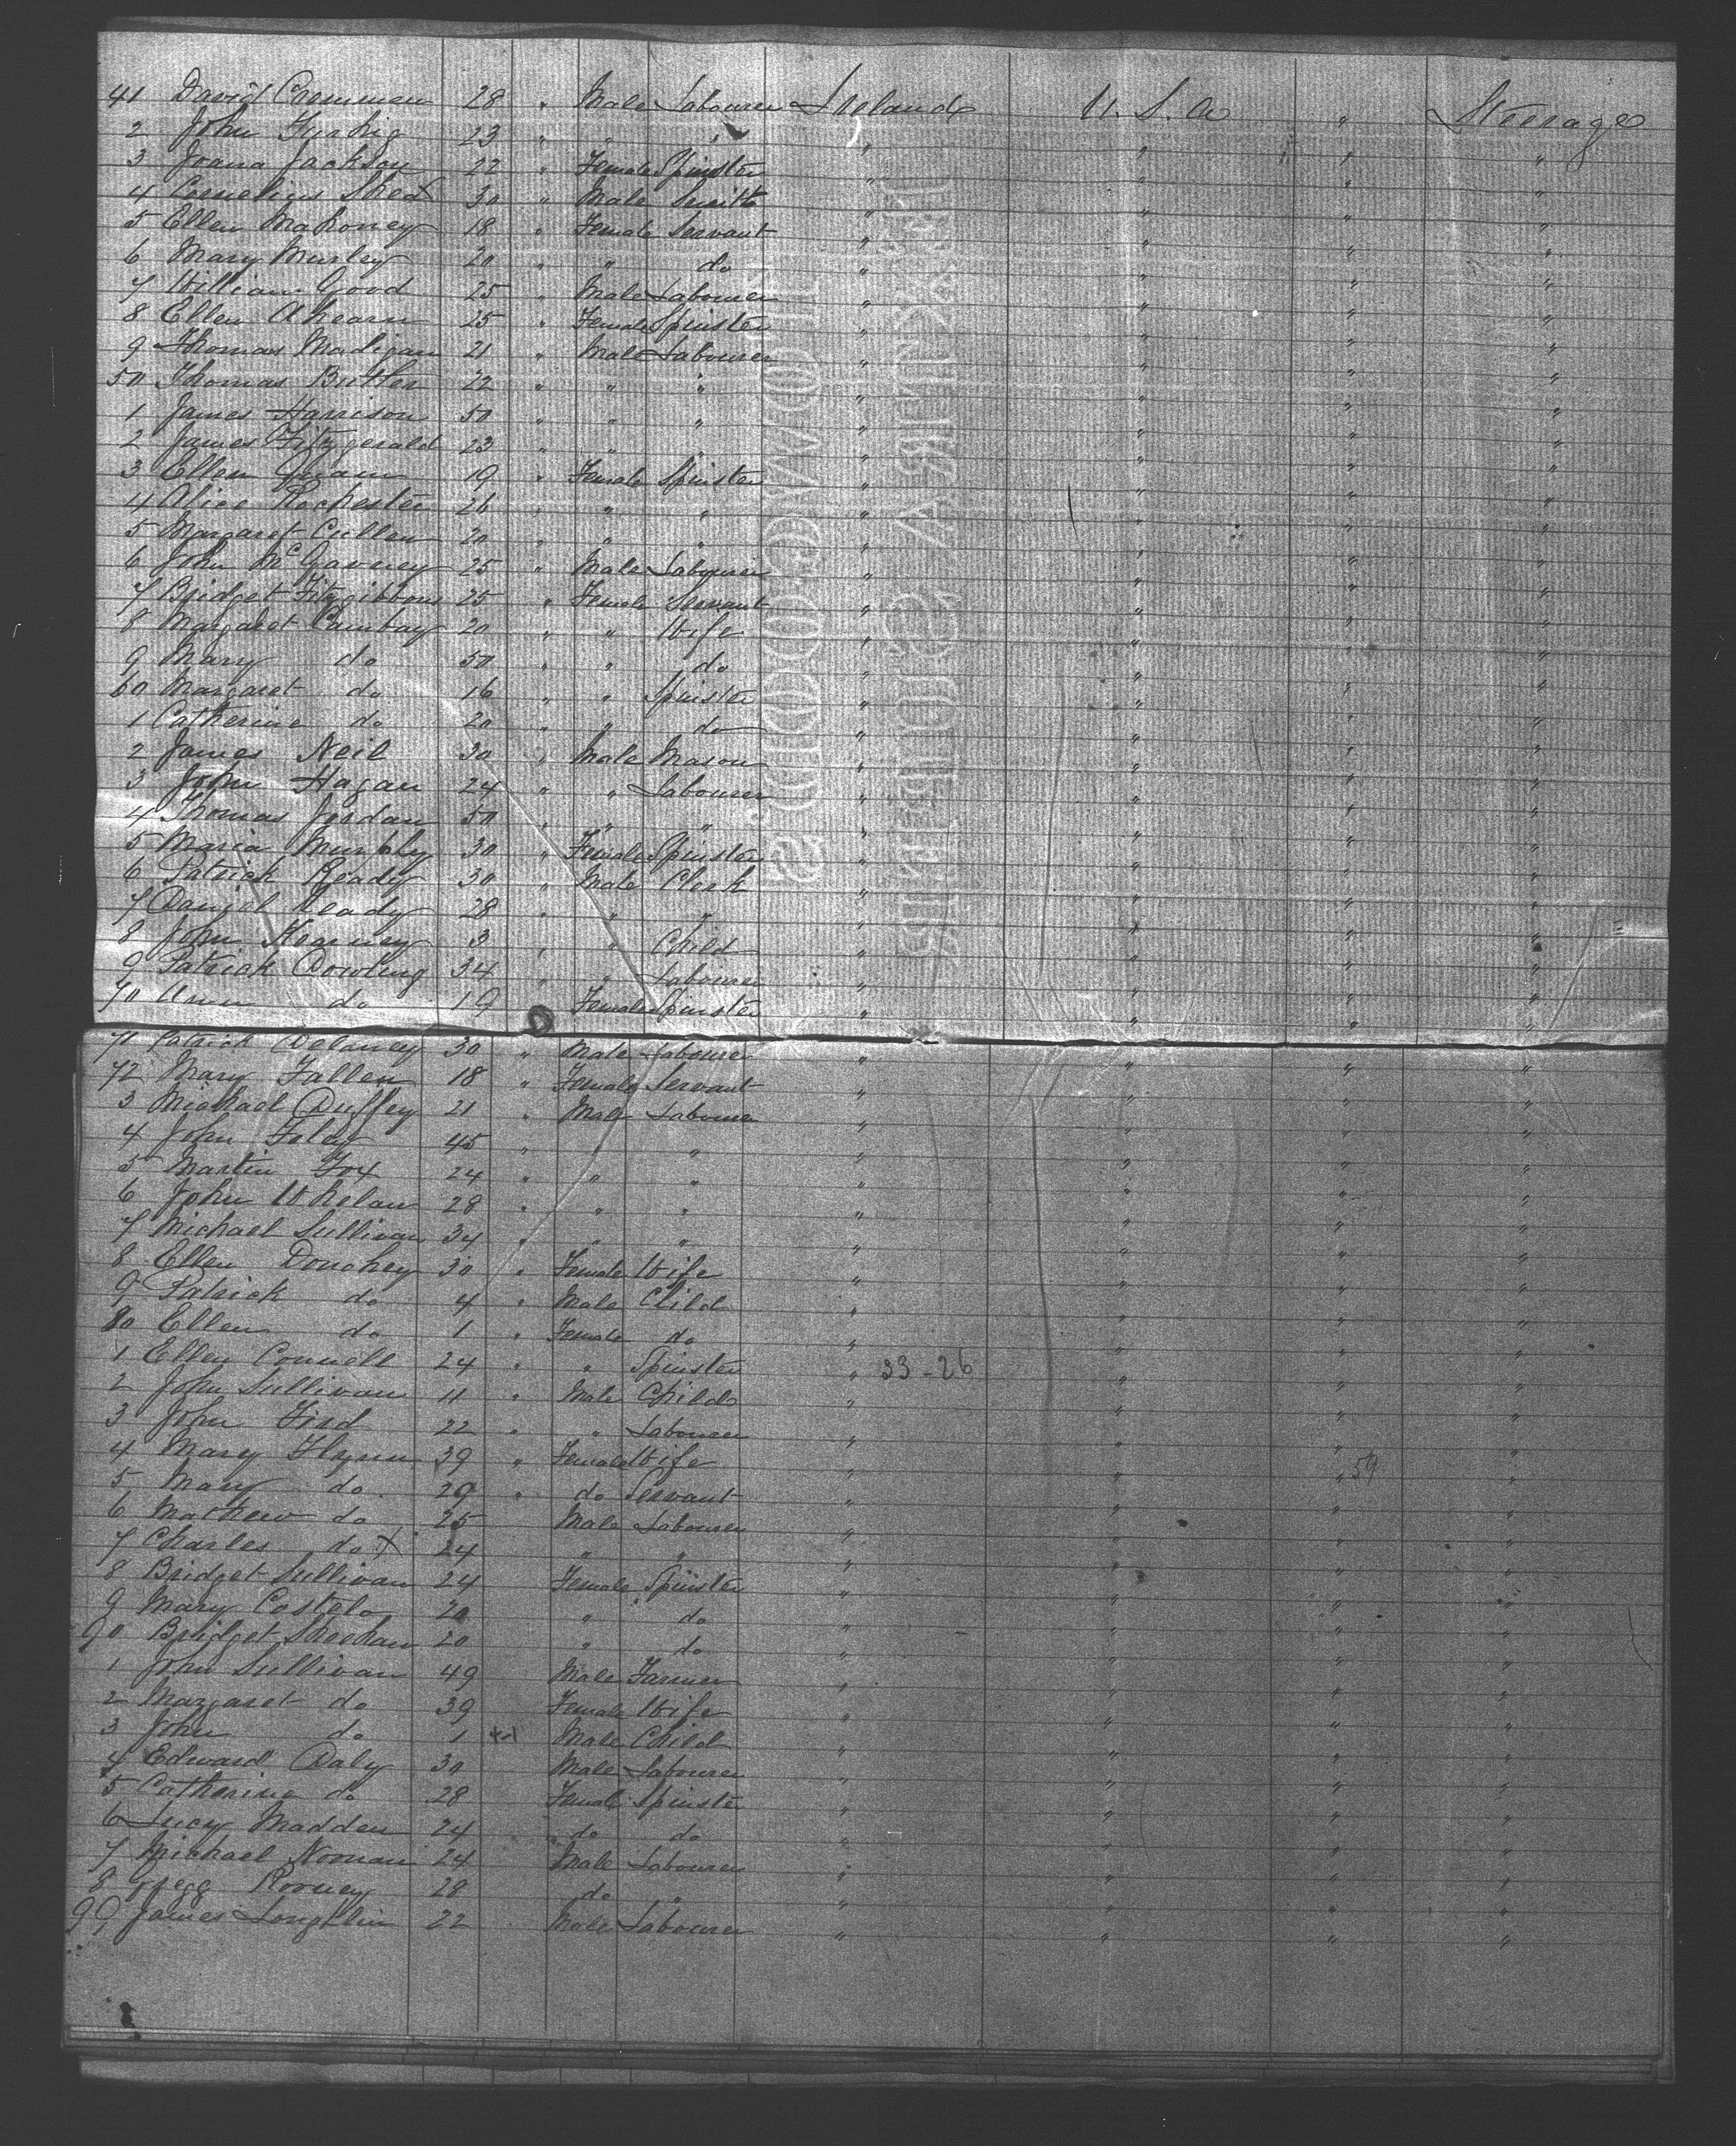 41 David Cremmen 28 " Male Labourer Ireland U. S. A " Steerage
2 John 23 " " " " " " "
3 Joana Jackson 22 " Female Spinster " " " "
4 Cornelius Shea X 30 " Male Smith " " " "
5 Ellen Mahoney 18 " Female Servant " " " "
6 Mary Murley 20 " " do " " " "
7 William Good 25 " Male Labourer " " " "
8 Ellen Ahearn 25 " Female Spinster " " " "
9 Thomas Madigan 21 " Male Labourer " " " "
50 Thomas Butler 22 " " " " " " "
1 James Harrison 50 " " " " " " "
2 James Fitzgerald 23 " " " " " " "
3 Ellen 19 " Female Spinster " " " "
4 Alice Rochester 26 " " " " " " "
5 Margaret Cullen 20 " " " " " " "
6 John McGawney 25 " Male Labourer " " " "
7 Bridget Fitzgibbons 25 " Female Servant " " " "
8 Margaret Cambay 20 " " Wife " " " "
9 Mary do 50 " " do " " " "
60 Margaret do 16 " " Spinster " " " "
1 Catherine do 20 " " do " " " "
2 James Neil 30 " Male Mason " " " "
3 John Hagan 24 " " Labourer " " " "
4 Thomas Jordan 50 " " " " " " "
5 Maria Murphy 30 " Female Spinster " " " "
6 Patrick Ready 30 " Male Clerk " " " "
7 Daniel Ready 28 " " " " " " "
8 John Kearney 3 " " Child " " " "
9 Patrick Dowling 34 " " Labourer " " " "
70 Ann do 19 Female Spinster " " " "
71 Patrick Delaney 30 " Male Labourer " " " "
72 Mary Fallen 18 " Female Servant " " " "
3 Michael Duffey 21 " Male Labourer " " " "
4 John Foley 45 " " " " " " "
5 Martin Fox 24 " " " " " " "
6 John Whelan 28 " " " " " " "
7 Michael Sullivan 34 " " " " " " "
8 Ellen Donohey 30 " Female Wife " " " "
9 Patrick do 4 " Male Child " " " "
80 Ellen do 1 " Female do " " " "
1 Ellen Connell 24 " " Spinster " 33-26 " " "
2 John Sullivan 11 " Male Child " " " "
3 John Find 22 " " Labourer " " " "
4 Mary Flynn 39 " Female Wife " " " 59 "
5 Mary do 29 " do Servant " " " "
6 Mathew do 25 Male Labourer " " " "
7 Charles do X 24 " " " " " "
8 Bridget Sullivan 24 Female Spinster " " " "
9 Mary Costelo 20 " do " " " "
90 Bridget Sheehan 20 " do " " " "
1 John Sullivan 49 Male Farmer " " " "
2 Margaret do 39 Female Wife " " " "
3 John do 1 Male Child " " " "
4 Edward Daly 30 Male Labourer " " " "
5 Catherine do 28 Female Spinster " " " "
6 Lucy Madden 24 do do " " " "
7 Michael Noonan 24 Male Labourer " " " "
8 Rooney 28 do " " " " "
99 James Loughlin 22 Male Labourer " " " "